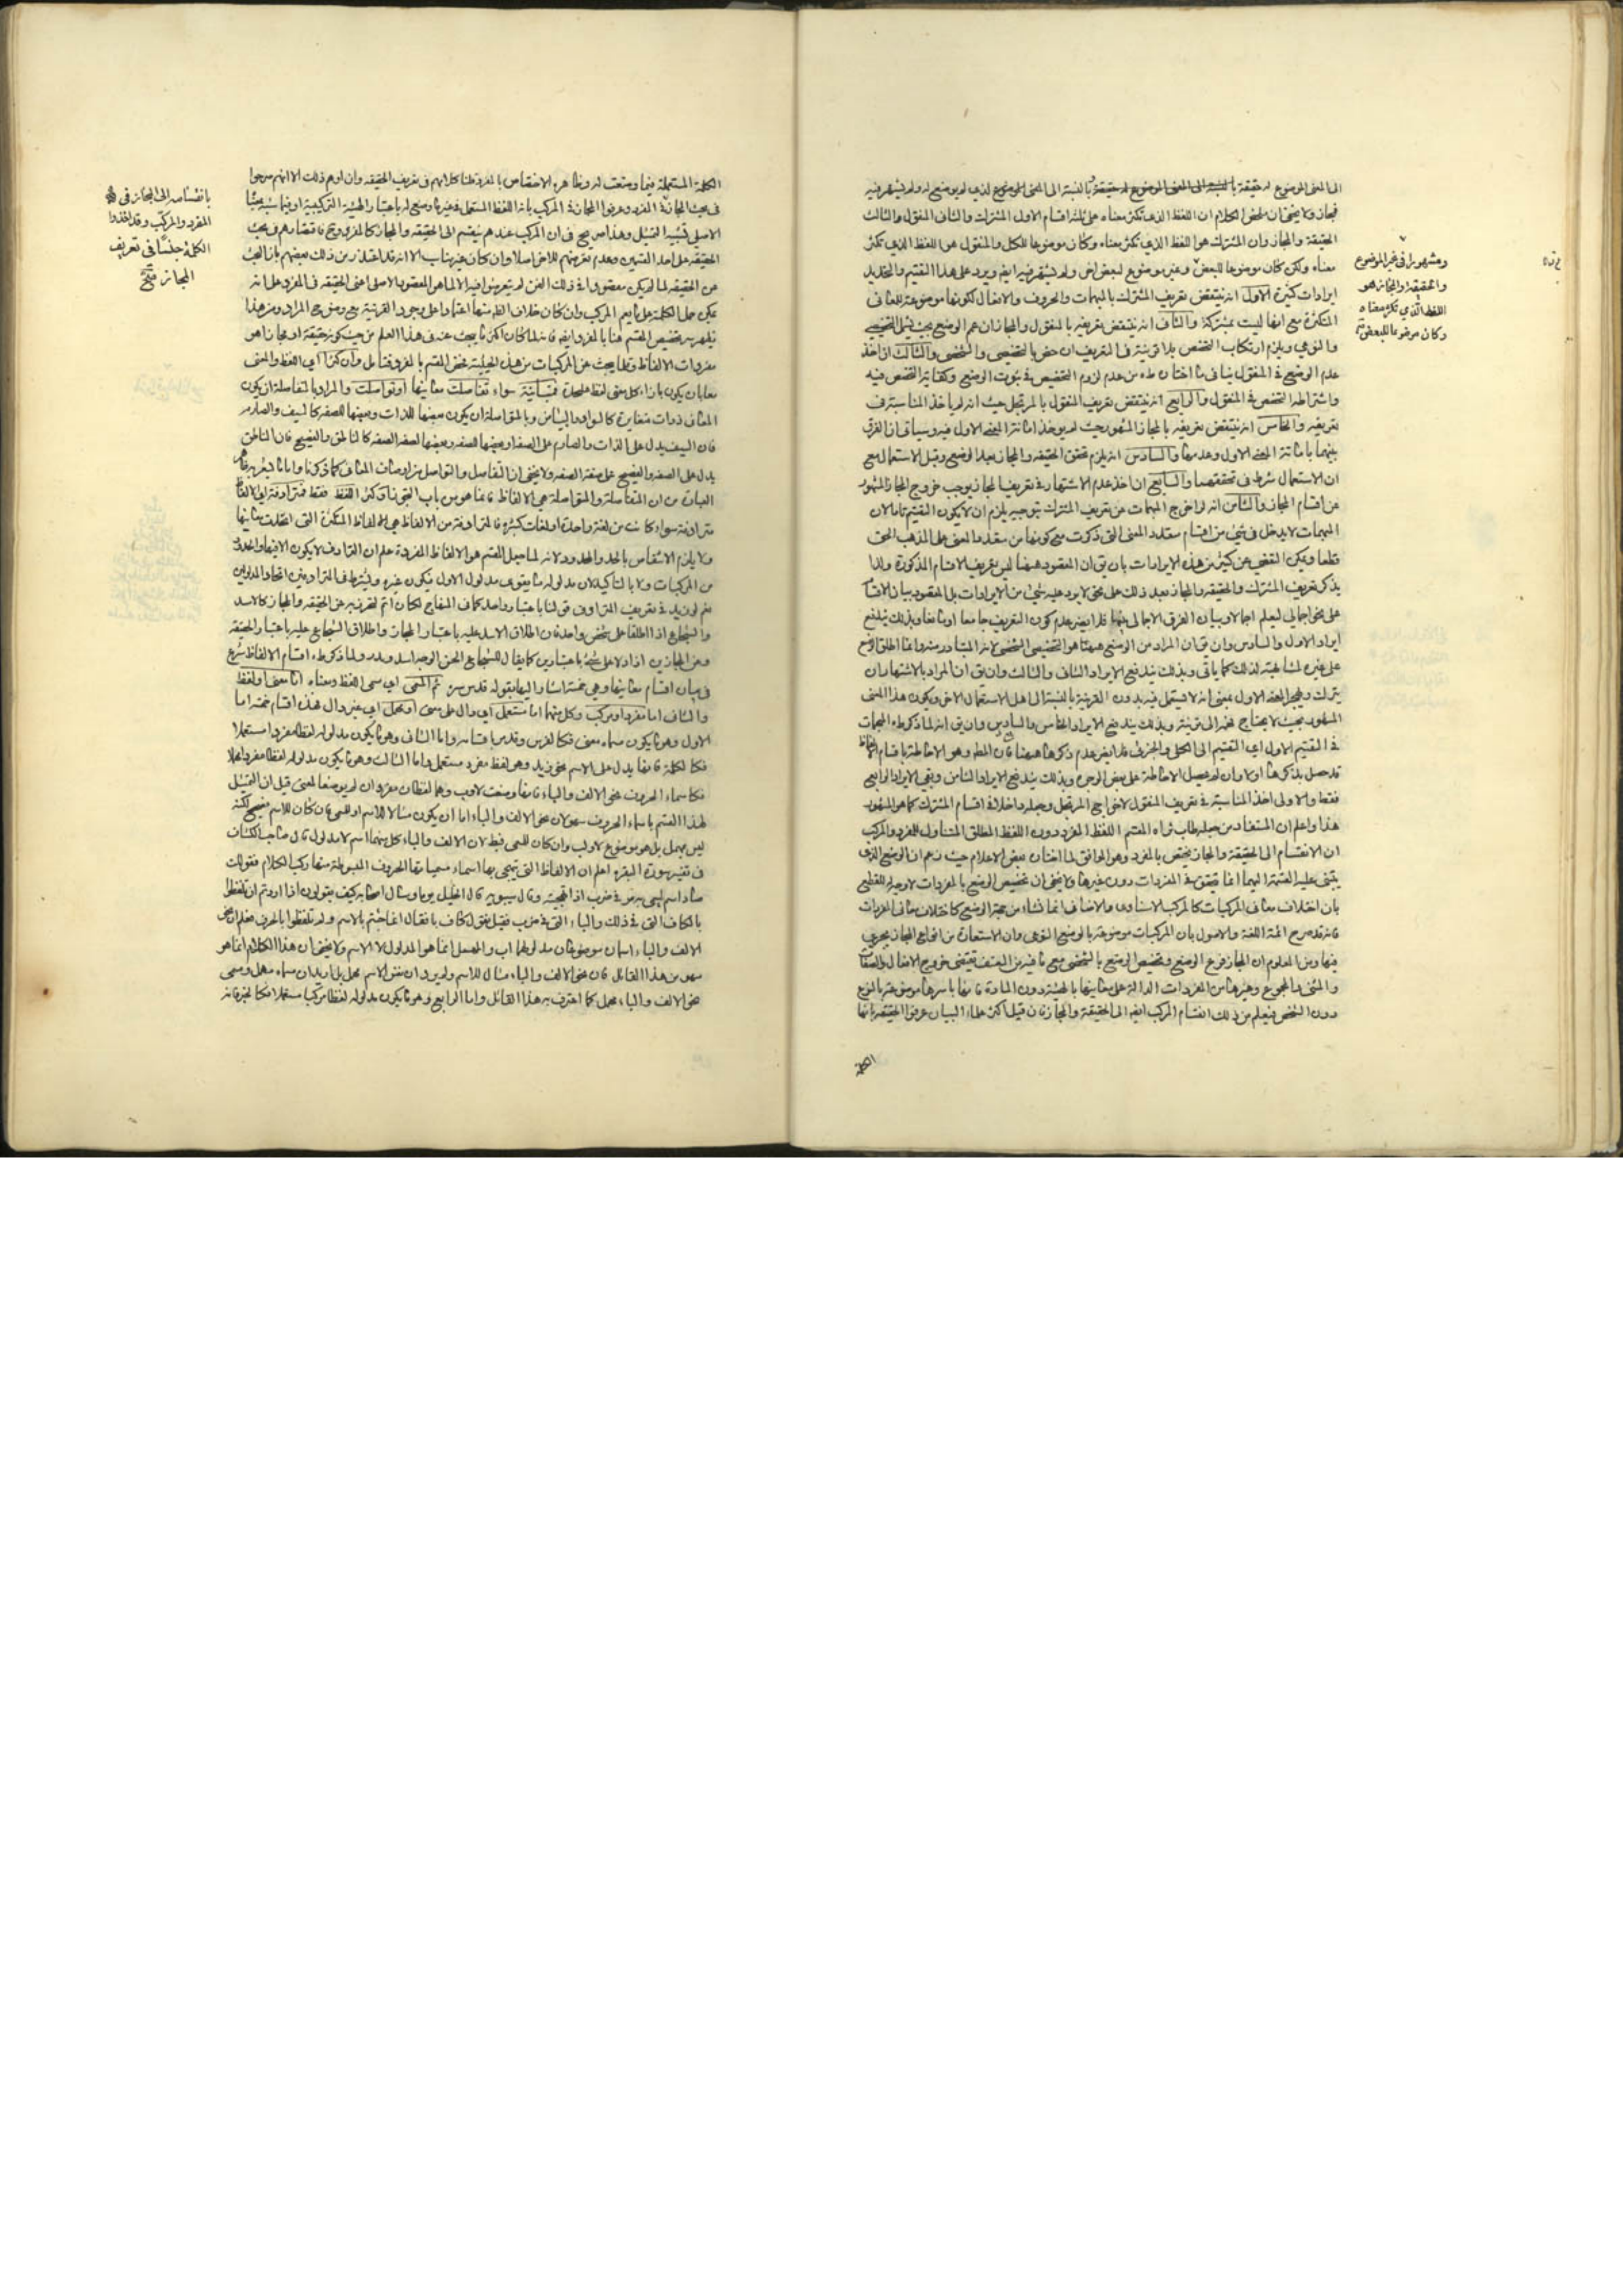 الى المعنى الموضوع له حقيقة بالنسبة الى المعنى الموضوع له حقيقة بالنسبة الى المعنى الموضوع لذي لم يوضع له ولم يشتهر فيه
مجاز ولا يخفى ان ملخص الكلام ان اللفظ الذي تكثر معناه على ثلثة اقسام الاول المشترك والثاني المنقول والثالث
الحقيقة والمجاز وان المشترك هو اللفظ الذي تكثر معناه وكان موضوعا للكل والمنقول هو اللفظ الذي تكثر
معناه ولكن كان موضوعا للبعض وغير موضوع لبعض اخر ولم يشتهر فيه ايضا ويرد على هذا التقسيم والتحديد
ايرادات كثيرة الاول انه ينتقض تعريف المشترك بالمبهمات والحروف والافعال لكونها موضوعة للمعاني
المتكثرة مع انها ليست بمشتركة والثاني انه ينتقض تعريفه بالمنقول والمجاز ان عم الوضع بحيث يشمل الشخصي
والنوعي ويلزم ارتكاب التخصص بلا قرينة في التعريف ان خص بالشخصي والثالث ان اخذ
عدم الوضع في المنقول ينافي ما اختاره من عدم لزوم التخصيص في ثبوت الوضع وكفاية التخصص فيه
واشتراط التخصص في المنقول والرابع انه ينتقض تعريف المنقول بالمرتجل حيث انه لم ياخذ المناسبة في
تعريفه والخامس انه ينتقض تعريفه بالمجاز المشهور حيث لم يوخذ المعنى الاول فيه وسياتي ان الفرق
بينهما المعنى الاول وعدمها والسادس انه يلزم تحقق الحقيقة والمجاز بعد الوضع وقبل الاستعمال مع
ان الاستعمال شرط في تحققهما والسابع ان اخذ عدم الاشتهار في تعريف المجاز يوجب خروج المجاز المشهور
عن اقسام المجاز والثامن انه لو اخرج المبهمات عن تعريف المشترك بتوجيه يلزم ان لا يكون التقسيم تاما لان
المبهمات لا يدخل في شيء من اقسام متعدد المعنى التي ذكرت مع كونها من متعدد المعنى على المذهب الحق
قطعا ويمكن التفصي عن كثير من هذه الايرادات بان يق ان المقصود ههنا ليس تعريف الاقسام المذكورة ولذا
يذكر تعريف المشترك والحقيقة والمجاز بعد ذلك على نحو لا يرد عليه شيء من الايرادات بل المقصود بيان الاقسام
على نحو اجمالي ليعلم اجمالا وبيان الفرق الاجمالي بينها فلا يضر عدم كون التعريف جامعا او مانعا وبذلك يندفع
ايراد الاول والسادس وان يق ان المراد من الوضع ههنا هو التخصيص الشخصي لانه المتبادر منه وانما اطلق الوضع
على غيره لمشابهته لذلك كما ياتي وبذلك يندفع الايراد الثاني والثالث وان يق ان المراد بالاشتهار ان
يترك ويهجر المعنى الاول بمعنى انه لا يستعمل فيه بدون القرينة بالنسبة الى اهل الاستعمال الاخر ويكون هذا المعنى
المشهور بحيث لا يحتاج فهمه الى قرينة وبذلك يندفع الايراد الخامس والسابع وان يق انه لما ذكر المبهمات
في التقسيم الاول اي التقسيم الى الكلي والجزئي فلا يضر عدم ذكرها ههنا فان المط وهو الاحاطة باقسام الالفاظ
قد حصل بذكرها اولا وان لم يحصل الاحاطة على بعض الوجوه وبذلك يندفع الايراد الثامن وبقي الايراد الرابع
فقط والاولى اخذ المناسبة في تعريف المنقول لاخراج المرتجل وجعله داخلا في اقسام المشترك كما هو المشهور
هذا واعلم ان المستفاد من جعله طاب ثراه المقسم اللفظ المفرد دون اللفظ المطلق المتناول للمفرد والمركب
ان الانقسام الى الحقيقة والمجاز يختص بالمفرد وهو الموافق لما اختاره بعض الاعلام حيث زعم ان الوضع الذي
يبتني عليه القسمة اليهما انما يتحقق في المفردات دون غيرها ولا يخفى ان تخصيص الوضع بالمفردات لا وجه له للقطع
بان اختلاف معاني المركبات كالمركب الاسنادي والاضافي انما نشاء من جهة الوضع كاختلاف معاني المفردات
فانه قد صرح ائمة اللغة والاصول بان المركبات موضوعة بالوضع النوعي وان الاستعارة من انواع المجاز يجري
فيها ومن المعلوم ان المجاز فرع الوضع وتخصيص الوضع بالشخصي مع ما فيه من التعسف يقتضي خروج الافعال والصفات
والمثنى والمجموع وغيرها من المفردات الدالة على معانيها بالهيئة دون المادة فانها باسرها موضوعة بالنوع
دون الشخص فيعلم من ذلك انقسام المركب ايضا الى الحقيقة والمجاز فان قيل اكثر علماء البيان عرفوا الحقيقة بانها
الكلمة
ومشهورا في غير الموضوع
والحقيقة والمجاز هو
اللفظ الذي تكثر معناه
وكان موضوعا للبعض
الكلمة المستعملة فيما وضعت له وظاهره الاختصاص بالمفرد قلنا كلامهم في تعريف الحقيقة وان اوهم ذلك الا انهم صرحوا
في بحث المجاز في المفرد وعرفوا المجاز في المركب بانه اللفظ المستعمل في غير ما وضع له باعتبار الهيئة التركيبية او فيما شبه بمعناه
الاصلي تشبيه التمثيل وهذا صريح في ان المركب عندهم ينقسم الى الحقيقة والمجاز كالمفرد وح فاقتصارهم في بحث
الحقيقة على احد القسمين وعدم تعرضهم للاخر اصلا وان كان غير مناسب الا انه قد اعتذر من ذلك بعضهم بان البحث
عن الحقيقة لما لم يكن مقصودا في ذلك الفن لم يتعرضوا فيه الا لما هو المقصود الاصلي اعنى الحقيقة في المفرد على انه
يمكن حمل الكلمة على ما يعم المركب وان كان خلاف الظ منها اعتمادا على وجود القرينة مع وضوح المراد ومن هذا
يظهر سر تخصيص المقسم هنا بالمفرد وايضا فانه لما كان اكثر ما يبحث عنه في هذا العلم من حيث كونه حقيقة او مجازا هو
مفردات الالفاظ وقلما يبحث عن المركبات من هذه الحيثية خص المقسم بالمفرد فتامل وان كثرا اي اللفظ والمعنى
معا بان يكون بازاء كل معنى لفظ عليحدة فمتباينة سواء تفاصلت معانيها او تواصلت والمراد بالمتفاصلة ان يكون
المعاني ذوات متغايرة كالسواد والبياض وبالمتواصلة ان يكون بعضها للذات وبعضها للصفة كالسيف والصارم
فان السيف يدل على الذات والصارم على الصفة او بعضها للصفة وبعضها لصفة الصفة كالناطق والفصيح فان الناطق
يدل على الصفة والفصيح على صفة الصفة ولا يخفى ان التفاصل والتواصل من اوصاف المعاني كما ذكرنا
العبارة من ان المتفاصلة والمتواصلة هي الالفاظ فانما هو من باب التجوز وان كثر اللفظ فقط فمترادفة اي الالفاظ
مترادفة سواء كانت من لغة واحدة او لغات كثيرة فالمترادفة من الالفاظ هي الالفاظ المتكثرة التي اتحدت معانيها
ولا يلزم الانتقاض بالحد والمحدود لانه لما جعل المقسم هو الالفاظ المفردة علم ان الترادف لا يكون الا فيها والحدود
من المركبات ولا بالتاكيد لان مدلوله ما يتقوى مدلول الاول فيكون غيره ويشترط في المترادفين اتحاد المدلولين
نعم لو زيد في تعريف المترادف قولنا باعتبار واحد كما في المفتاح لكان اتم لتخرج به عن الحقيقة والمجاز كالاسد
والشجاع اذا اطلقا على شخص واحد فان اطلاق الاسد عليه باعتبار المجاز واطلاق الشجاع عليه باعتبار الحقيقة
وعن المجازين اذا دلا على شيء باعتبارين كما يقال للشجاع الحسن الوجه اسد وبدر ولما ذكر اقسام الالفاظ شرع
في بيان اقسام معانيها وهي خمسة اشار اليها بقوله قدس سره ثم المعنى اي مسمى اللفظ ومعناه اما معنى او لفظ
والثاني اما مفرد او مركب وكل منهما اما مستعمل اي دال على معنى او مهمل اي غير دال فهذه اقسام خمسة اما
الاول وهو ما يكون مسماه معنى فكالفرس وقد مر اقسامه واما الثاني وهو ما يكون مدلوله لفظا مفردا مستعملا
فكالكلمة فانها يدل على الاسم نحو زيد وهو لفظ مفرد مستعمل واما الثالث وهو ما يكون مدلوله لفظا مفردا مهملا
فكاسماء الحروف نحو الالف والباء فانها وضعت لا وب وهما لفظان مفردان لم يوضعا لمعنى قيل ان التمثيل
لهذا القسم باسماء الحروف سهو لان نحو الالف والباء اما ان يكون مثالا للاسم او للمسمى فان كان للاسم فصحيح لكنه
ليس بمهمل بل هو موضوع لاوب وان كان للمسمى فبط لان الالف والباء كل منهما اسم لا مدلول قال صاحب الكشاف
في تفسير سورة البقرة اعلم ان الالفاظ التي يتهجى بها اسماء مسمياتها الحروف المبسوطة منها ركبت الكلام فقولك
ضاد اسم سمي به ضه من ضرب اذا تهجيته وقال سيبويه قال الخليل يوما وسال اصحابه كيف يقولون اذا اردتم ان تلفظوا
بالكاف التي في ذلك والباء التي في ضرب فقيل نقول كاف با فقال انما جئتم بالاسم ولم تلفظوا بالحرف فعلم ان نحو
الالف والباء اسمان موضوعان مدلولهما اب والمهمل انما هو المدلول لا الاسم ولا يخفى ان هذا الكلام انما هو
سهو من هذا القائل فان نحو الالف والباء مثال للاسم ولم يرد ان نفس الاسم مهمل بل اريد ان مسماه مهمل ومسمى
نحو الالف والباء مهمل كما اعترف به هذا القائل واما الرابع وهو ما يكون مدلوله لفظا مركبا مستعملا فكالخبر فانه
بانقسامه الى المجاز في
المفرد والمركب وقد اخذوا
الكلمة جنسا في تعريف
المجاز صح